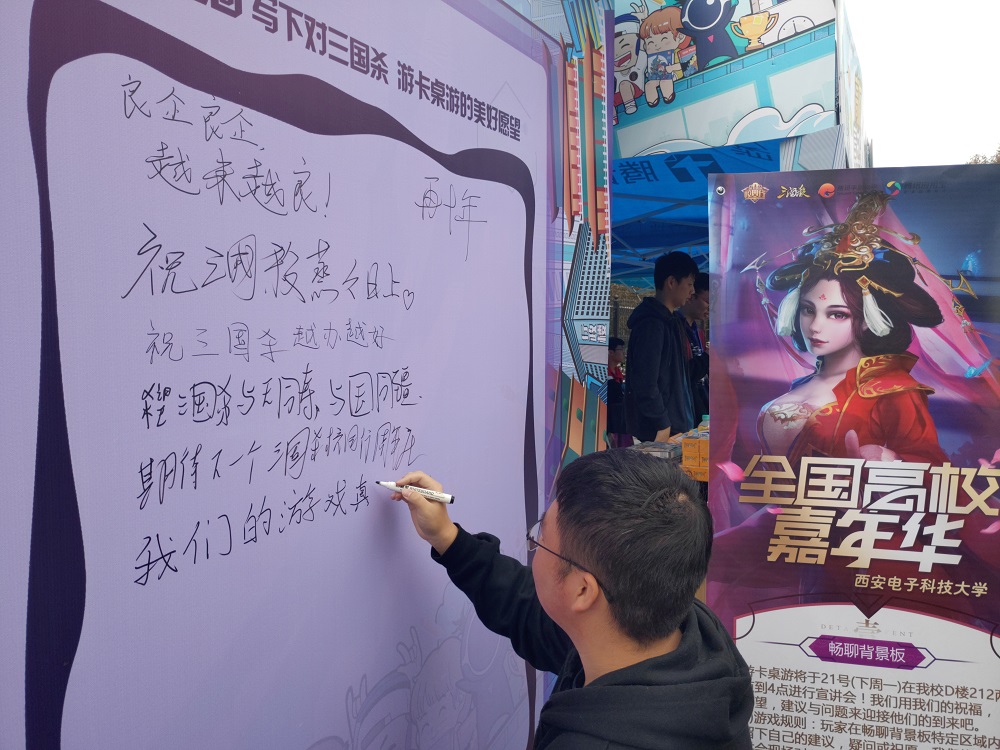 写下对三国杀 游卡桌游的美好愿望
良企良企，
越来越良！
再十年
祝三國殺蒸々日上♡
祝三国杀越办越好
三国杀与天同寿，与国同疆.
期待下一个三国杀校园行周年庆
我们的游戏真
三国杀
全国高校
嘉年华
西安电子科技大学
畅聊背景板
游卡桌游将于21号(下周一)在我校D楼212两
到4点进行宣讲会！我们用我们的祝福，
望，建议与问题来迎接他们的到来吧。
游戏规则：玩家在畅聊背景板特定区域内
下自己的建议，疑问或祝